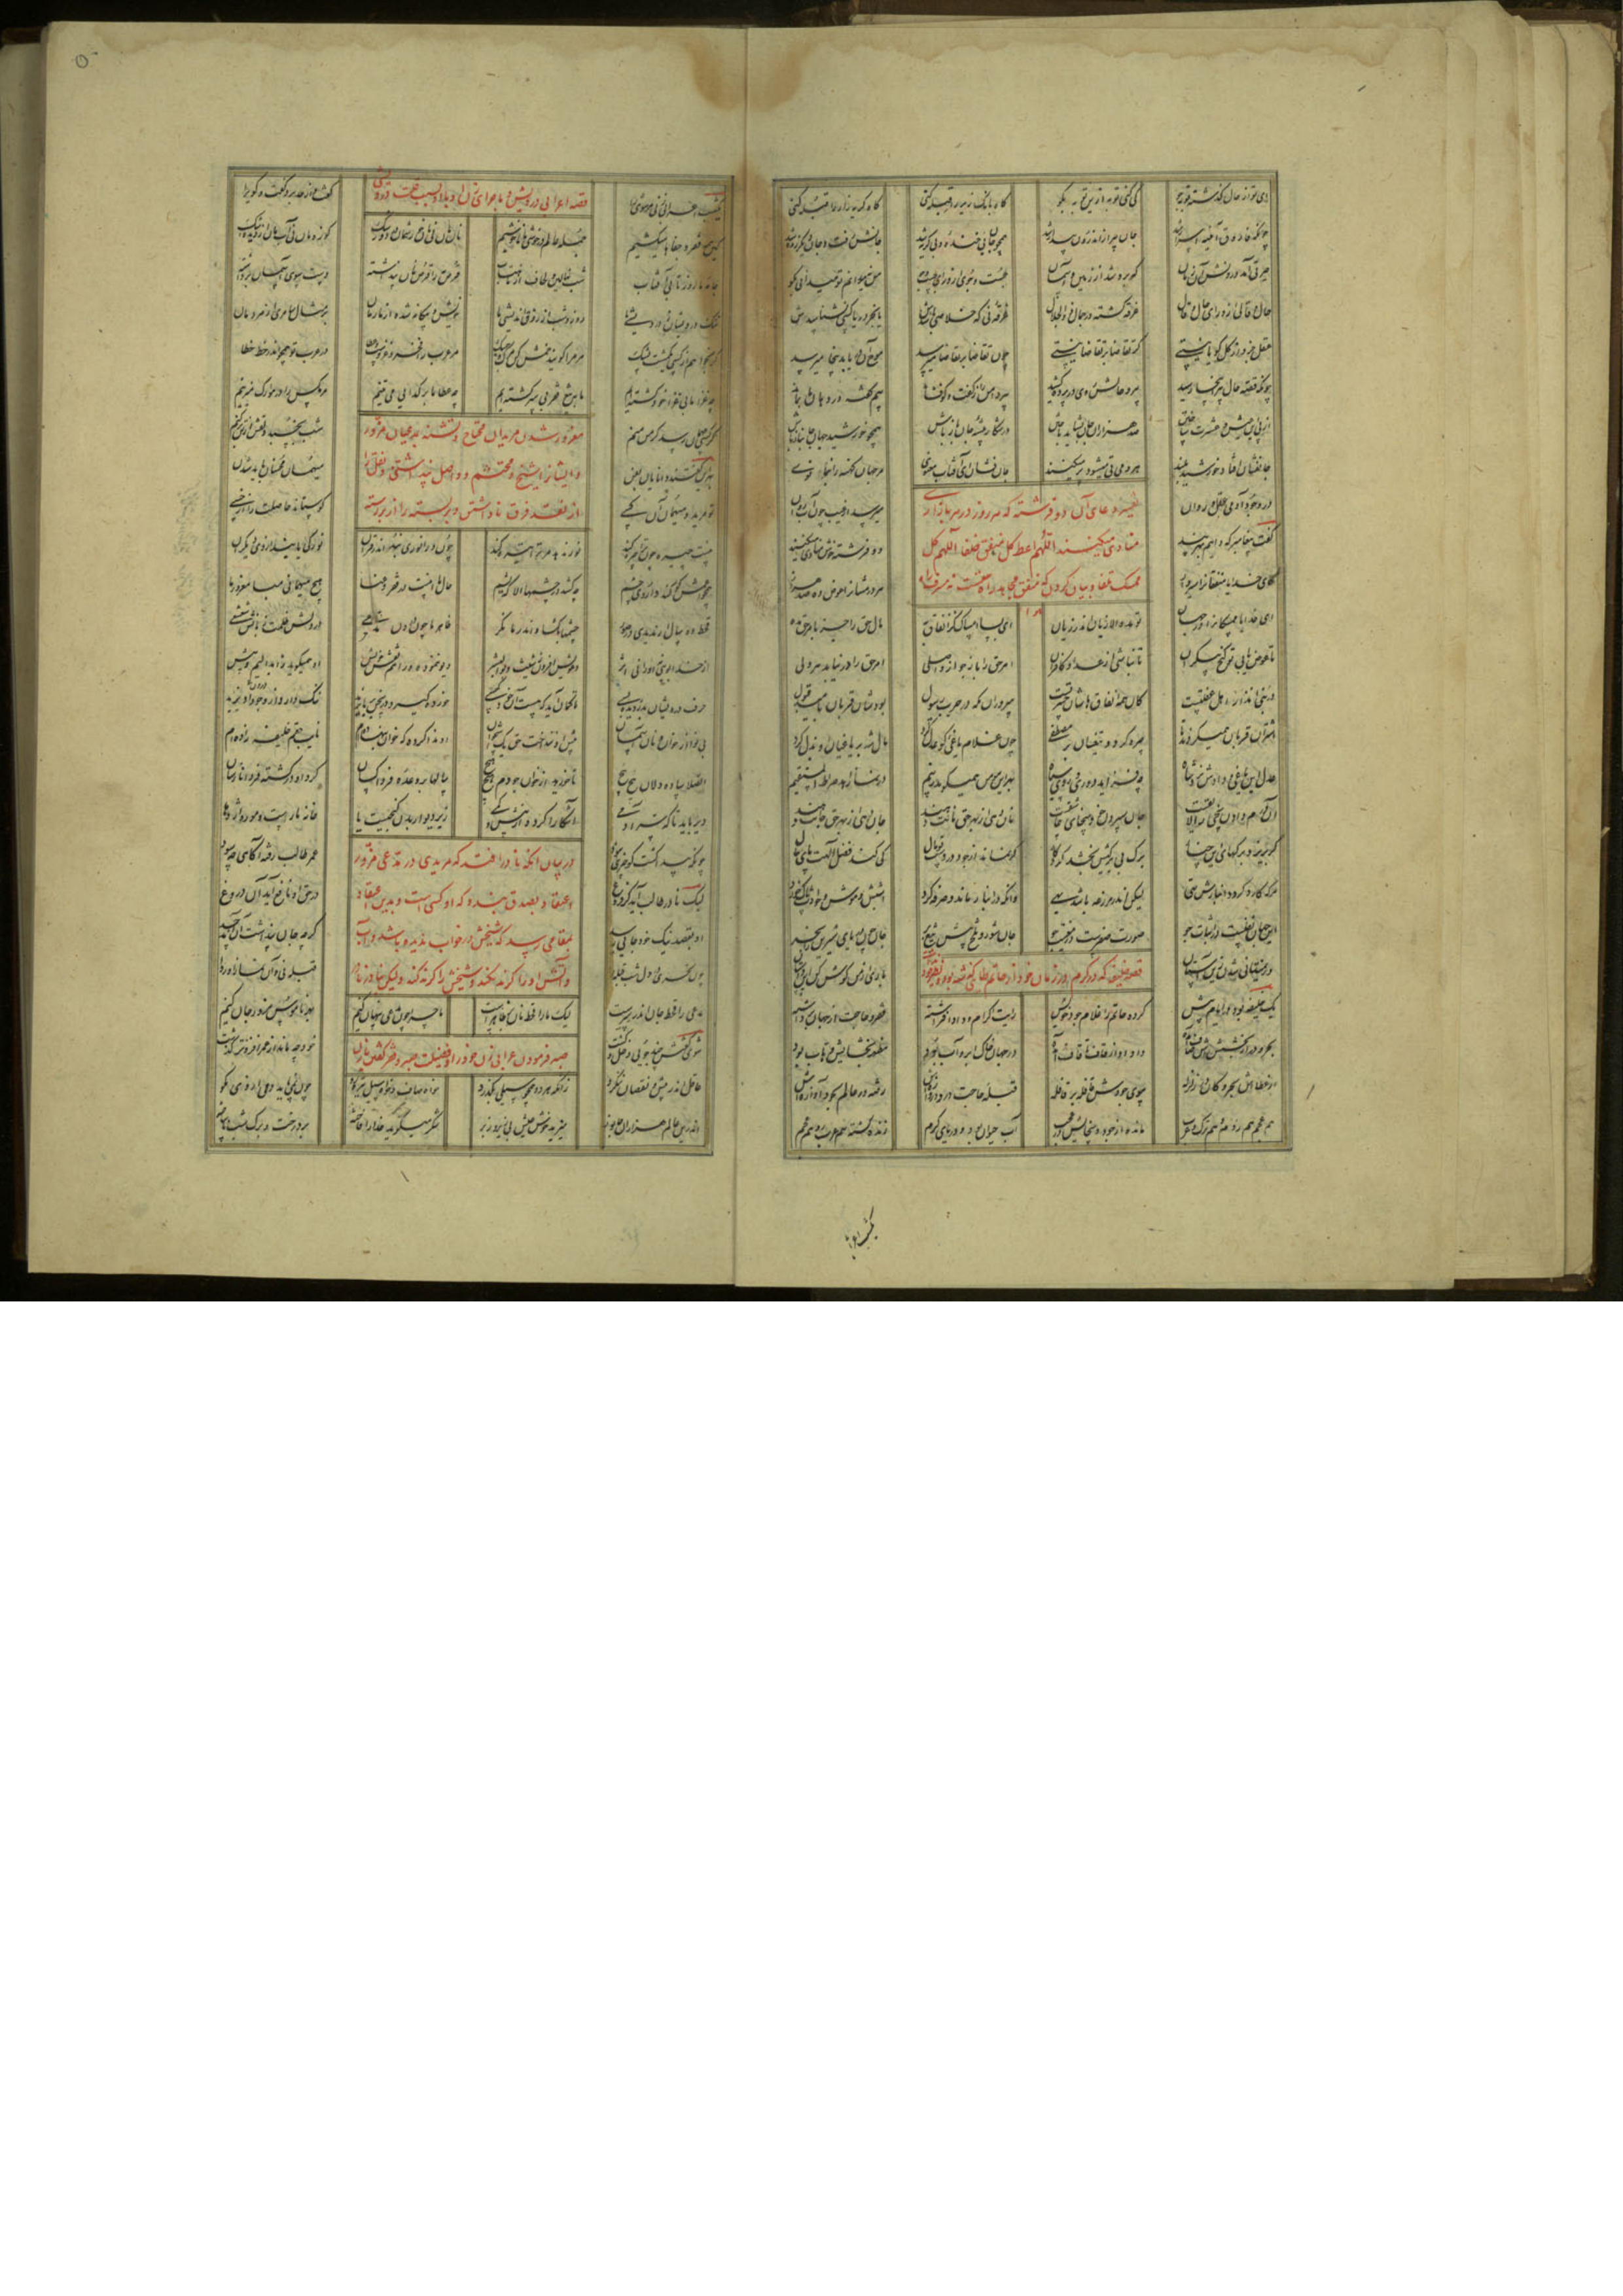 ای تو از حال گذشته توبه جو کی کنی توبه ازین توبه بگو گاه بانگ زیر را قبله کنی گاه گریه زار را قبله کنی
چونکه فاروق آینه اسرار شد جان پیر از اندرون بیدار شد همچو جان بی خنده و بی گریه شد جانش رفت و جان دیگر زنده شد
حیرتی آمد درونش آن زمان که برون شد از زمین و آسمان جست و جوی از ورای جست و جو من نمیدانم تو میدانی بگو
حال و قالی از ورای حال و قال غرقه گشته در جمال ذوالجلال غرقه‌ئی که خلاصی باشدش یا بجز دریا کسی بشناسدش
عقل جزو از کل گویا نیستی گر تقاضا بر تقاضا نیستی چون تقاضا بر تقاضا میرسد موج آن دریا بدینجا میرسد
چونکه قصه حال پیر اینجا رسید پیر و حالش روی در پرده کشید پیر دامن را ز گفت و گو فشاند نیم گفته در دهان ما بماند
از پی این عیش و عشرت ساختن صد هزاران جان بشاید باختن در شکار بیشه جان باز باش همچو خورشید جهان جان باز باش
جانفشان افتاد خورشید بلند هر دمی تی میشود پر میکنند جان فشان ای آفتاب معنوی مر جهان کهنه را بنما نوی
در وجود آدمی عقل و روان میرسد از غیب چون آب روان
تفسیر دعای آن دو فرشته که هر روز در هر بازاری
منادی میکنند اللهم اعط کل منفق خلفا اللهم کل
ممسک تلفا و بیان کردن که منفق مجاهد راه حقست نه مسرف راه
هوا
گفت پیغامبر که دایم بهر پند دو فرشته خوش منادی میکنند
کای خدایا منفقانرا سیر دار هر درمشانرا عوض ده صد هزار
ای خدایا ممسکانرا در جهان تو مده الا زیان اندر زیان ای بسا امساک کز انفاق به مال حق را جز بامر حق مده
تا عوض یابی تو گنج بیکران تا نباشی از عداد کافران امر حق را باز جو از واصلی امر حق را در نیابد هر دلی
در نبی انذار اهل غفلتست کان همه انفاقهاشان حسرتست سروران مکه در حرب رسول بودشان قربان بامید قبول
اشتران قربان همیکردند تا چیره گردد تیغشان بر مصطفی چون غلام یاغی کو عدل کرد مال شه بر یاغیان او بذل کرد
عدل این یاغی و دادش نزد شاه چه فزاید دوری و روی سیاه بهر این مومن همیگوید ز بیم در نماز اهد صراط المستقیم
آن درم دادن سخی را لایقست جان سپردن خود سخای عاشقست نان دهی از بهر حق نانت دهند جان دهی از بهر حق جانت دهند
گر بریزد برگهای این چنار برگ بی برگیش بخشد کردگار گر نماند از جود در دست تو مال کی کند فضل الهت پای مال
هر که کارد گردد انبارش تهی لیکن اندر مزرعه باشد بهی وانکه در انبار ماند و صرفه کرد اشپش و موش حوادث پاک خورد
این جهان نفیست در اثبات جو صورتت صفرست در معنیت جو جان شور و تلخ پیش تیغ بر جان چون دریای شیرین بخر
ور نمیتانی شدن زین آستان باری از من گوش کن این داستان
قصه خلیفه که در کرم در زمان خود از حاتم طایی گذشته بود و نظیر خود نداشت
یک خلیفه بود در ایام پیش کرده حاتم را غلام جود خویش رایت اکرام و داد افراشته فقر و حاجت از جهان برداشته
بحر و در از بخششش صاف آمده داد او از قاف تا قاف آمده در جهان خاک ابر و آب بود مظهر بخشایش وهاب بود
از عطااش بحر و کان در زلزله سوی جودش قافله بر قافله قبله حاجت در و دروازه‌اش رفته در عالم بجود آوازه‌اش
هم عجم هم روم هم ترک و عرب مانده از جود و سخایش در عجب آب حیوان بود و دریای کرم زنده گشته هم عرب زو هم عجم
یکشب اعرا
۵۰
قصه اعرابی درویش و ماجرای زن او با او بسبب قلت و درویشی
یکشب اعرابی زنی مر شوی را گفت و از حد برد گفت و گوی را
کین همه فقر و جفا ما میکشیم جمله عالم در خوشی ما ناخوشیم نان‌مان نی نانخورش‌مان درد و رشک کوزه‌مان نی آب‌مان از دیده اشک
جامه ما روز تاب آفتاب شب نهالین و لحاف از ماهتاب قرص مه را قرص نان پنداشته دست سوی آسمان برداشته
ننگ درویشان ز درویشی ما روز و شب از روزی اندیشی ما خویش و بیگانه شده از ما رمان بر مثال سامری از مردمان
گر بخواهم از کسی یک مشت نسک مر مرا گوید خمش کن مرگ و جسک مر عرب را فخر غزوست و عطا در عرب تو همچو اندر خط خطا
چه غزا ما بی غزا خود کشته‌ایم ما به تیغ فقر بی سر گشته‌ایم چه عطا ما بر گدایی می تنیم مر مگس را در هوا رگ میزنیم
گر کسی مهمان رسد گر من منم شب بخسبد دلقش از تن بر کنم
مغرور شدن مریدان محتاج و تشنه بمدعیان مزور
و ایشانرا شیخ و محتشم و واصل پنداشتن و نقل را
از نقد فرق نادانستن و بربسته را از بررسته
بهر این گفتند دانایان بفن میهمان محسنان باید شدن
تو مرید و میهمان آن کسی کو ستاند حاصلت را از خسی
نیست چیره چون ترا چیره کند نور ندهد مر ترا تیره کند چون ورا نوری نبود اندر قران نور کی یابند از وی دیگران
همچو اعمش کو کند داروی چشم چه کشد در چشمها الا که یشم حال ما اینست در فقر و عنا هیچ مهمانی مبا مغرور ما
قحط ده سال ار ندیدی در صور چشمها بگشا و اندر ما نگر ظاهر ما چون درون مدعی در دلش ظلمت زبانش شعشعی
از خدا بویی نه او را نی اثر دعویش افزون ز شیث و بوالبشر دیو ننموده ورا هم نقش خویش او همیگوید ز ابدالیم بیش
حرف درویشان بدزدیده بسی تا گمان آید که هست او خود کسی خرده گیرد در سخن بر بایزید ننگ دارد از درون او یزید
بی نوا از نان و خوان آسمان پیش او ننداخت حق یک استخوان او ندا کرده که خوان بنهاده‌ام نایب حقم خلیفه زاده‌ام
الصلا ساده دلان پیچ پیچ تا خورید از خوان جودم هیچ هیچ سالها بر وعده فردا کسان گرد آن در گشته فردا نارسان
دیر باید تا که سر آدمی آشکارا گردد از بیش و کمی زیر دیوار بدن گنجیست یا خانه مارست و مور و اژدها
چونکه پیدا گشت کو چیزی نبود عمر طالب رفت آگاهی چه سود
در بیان آنکه نادر افتد که مریدی در مدعی مزور
اعتقاد بصدق ببندد که او کسی است و بدین اعتقاد
بمقامی رسد که شیخش در خواب ندیده باشد و آب
و آتش او را گزند نکند و شیخش را گزند کند ولیکن بنادر
لیک نادر طالب آید کز فروغ در حق او نافع آید آن دروغ
او بقصد نیک خود جایی رسد گرچه جان پنداشت آن آمد جسد
چون تحری در دل شب قبله را قبله نی و آن نماز او روا
مدعی را قحط جان اندر سرست لیک ما را قحط نان بر ظاهرست ما چرا چون مدعی پنهان کنیم بهر ناموس مزور جان کنیم
صبر فرمودن اعرابی زن خود را و فضیلت صبر و فقر گفتن با زن
شوی گفتش چند جویی دخل و کشت خود چه ماند از عمر افزونتر گذشت
عاقل اندر بیش و نقصان ننگرد زانکه هر دو همچو سیلی بگذرد خواه صاف و خواه سیل تیره رو چون نمی پاید دمی از وی مگو
اندرین عالم هزاران جانور میزید خوش عیش بی زیر و زبر شکر میگوید خدا را فاخته بر درخت و برگ شب ناساخته